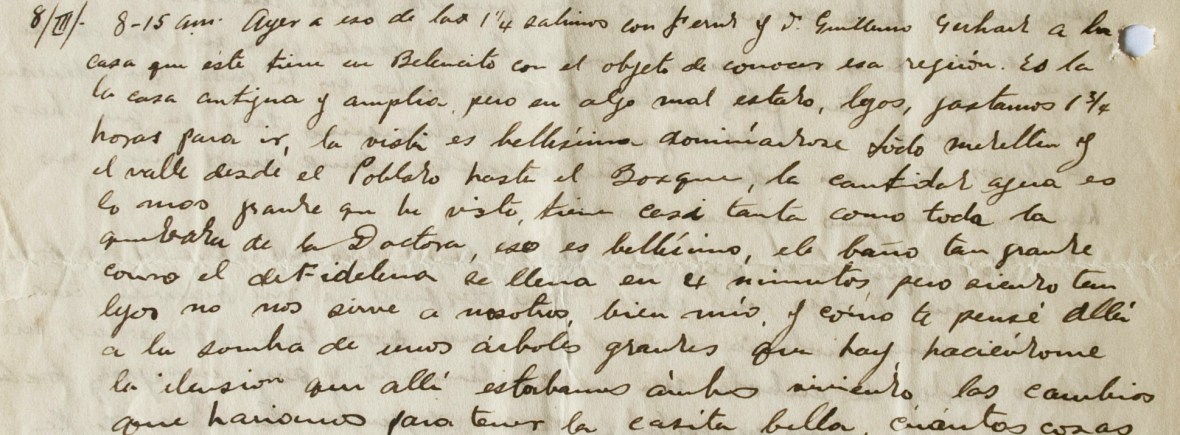 8/III/- 8-15 am. Ayer a eso de las 1¼ salimos con Fernt y D. Guillermo Gerhart a la
casa que este tiene en Belencito con el objeto de conocer esa región. Es la
la casa antigua y amplia, pero en algo mal estado, lejos, gastamos 1¾
horas para ir, la vista es bellísima dominandose todo medellin y
el valle desde el Poblado hasta el Bosque, la cantidad agua es
lo mas grande que he visto, tiene casi tanta como toda la
quebrada de la Doctora, eso es bellísimo, ele baño tan grande
como el de Fidelena se llena en 4 minutos pero siendo tan
lejos no nos sirve a nosotros, bien mío, y cómo te pensé allá
a la sombra de unos árboles grandes que hay haciéndome
la ilusion que allá estabamos ámbos viviendo, los cambios
que hariamos para tener la casita bella, cuántos cosas